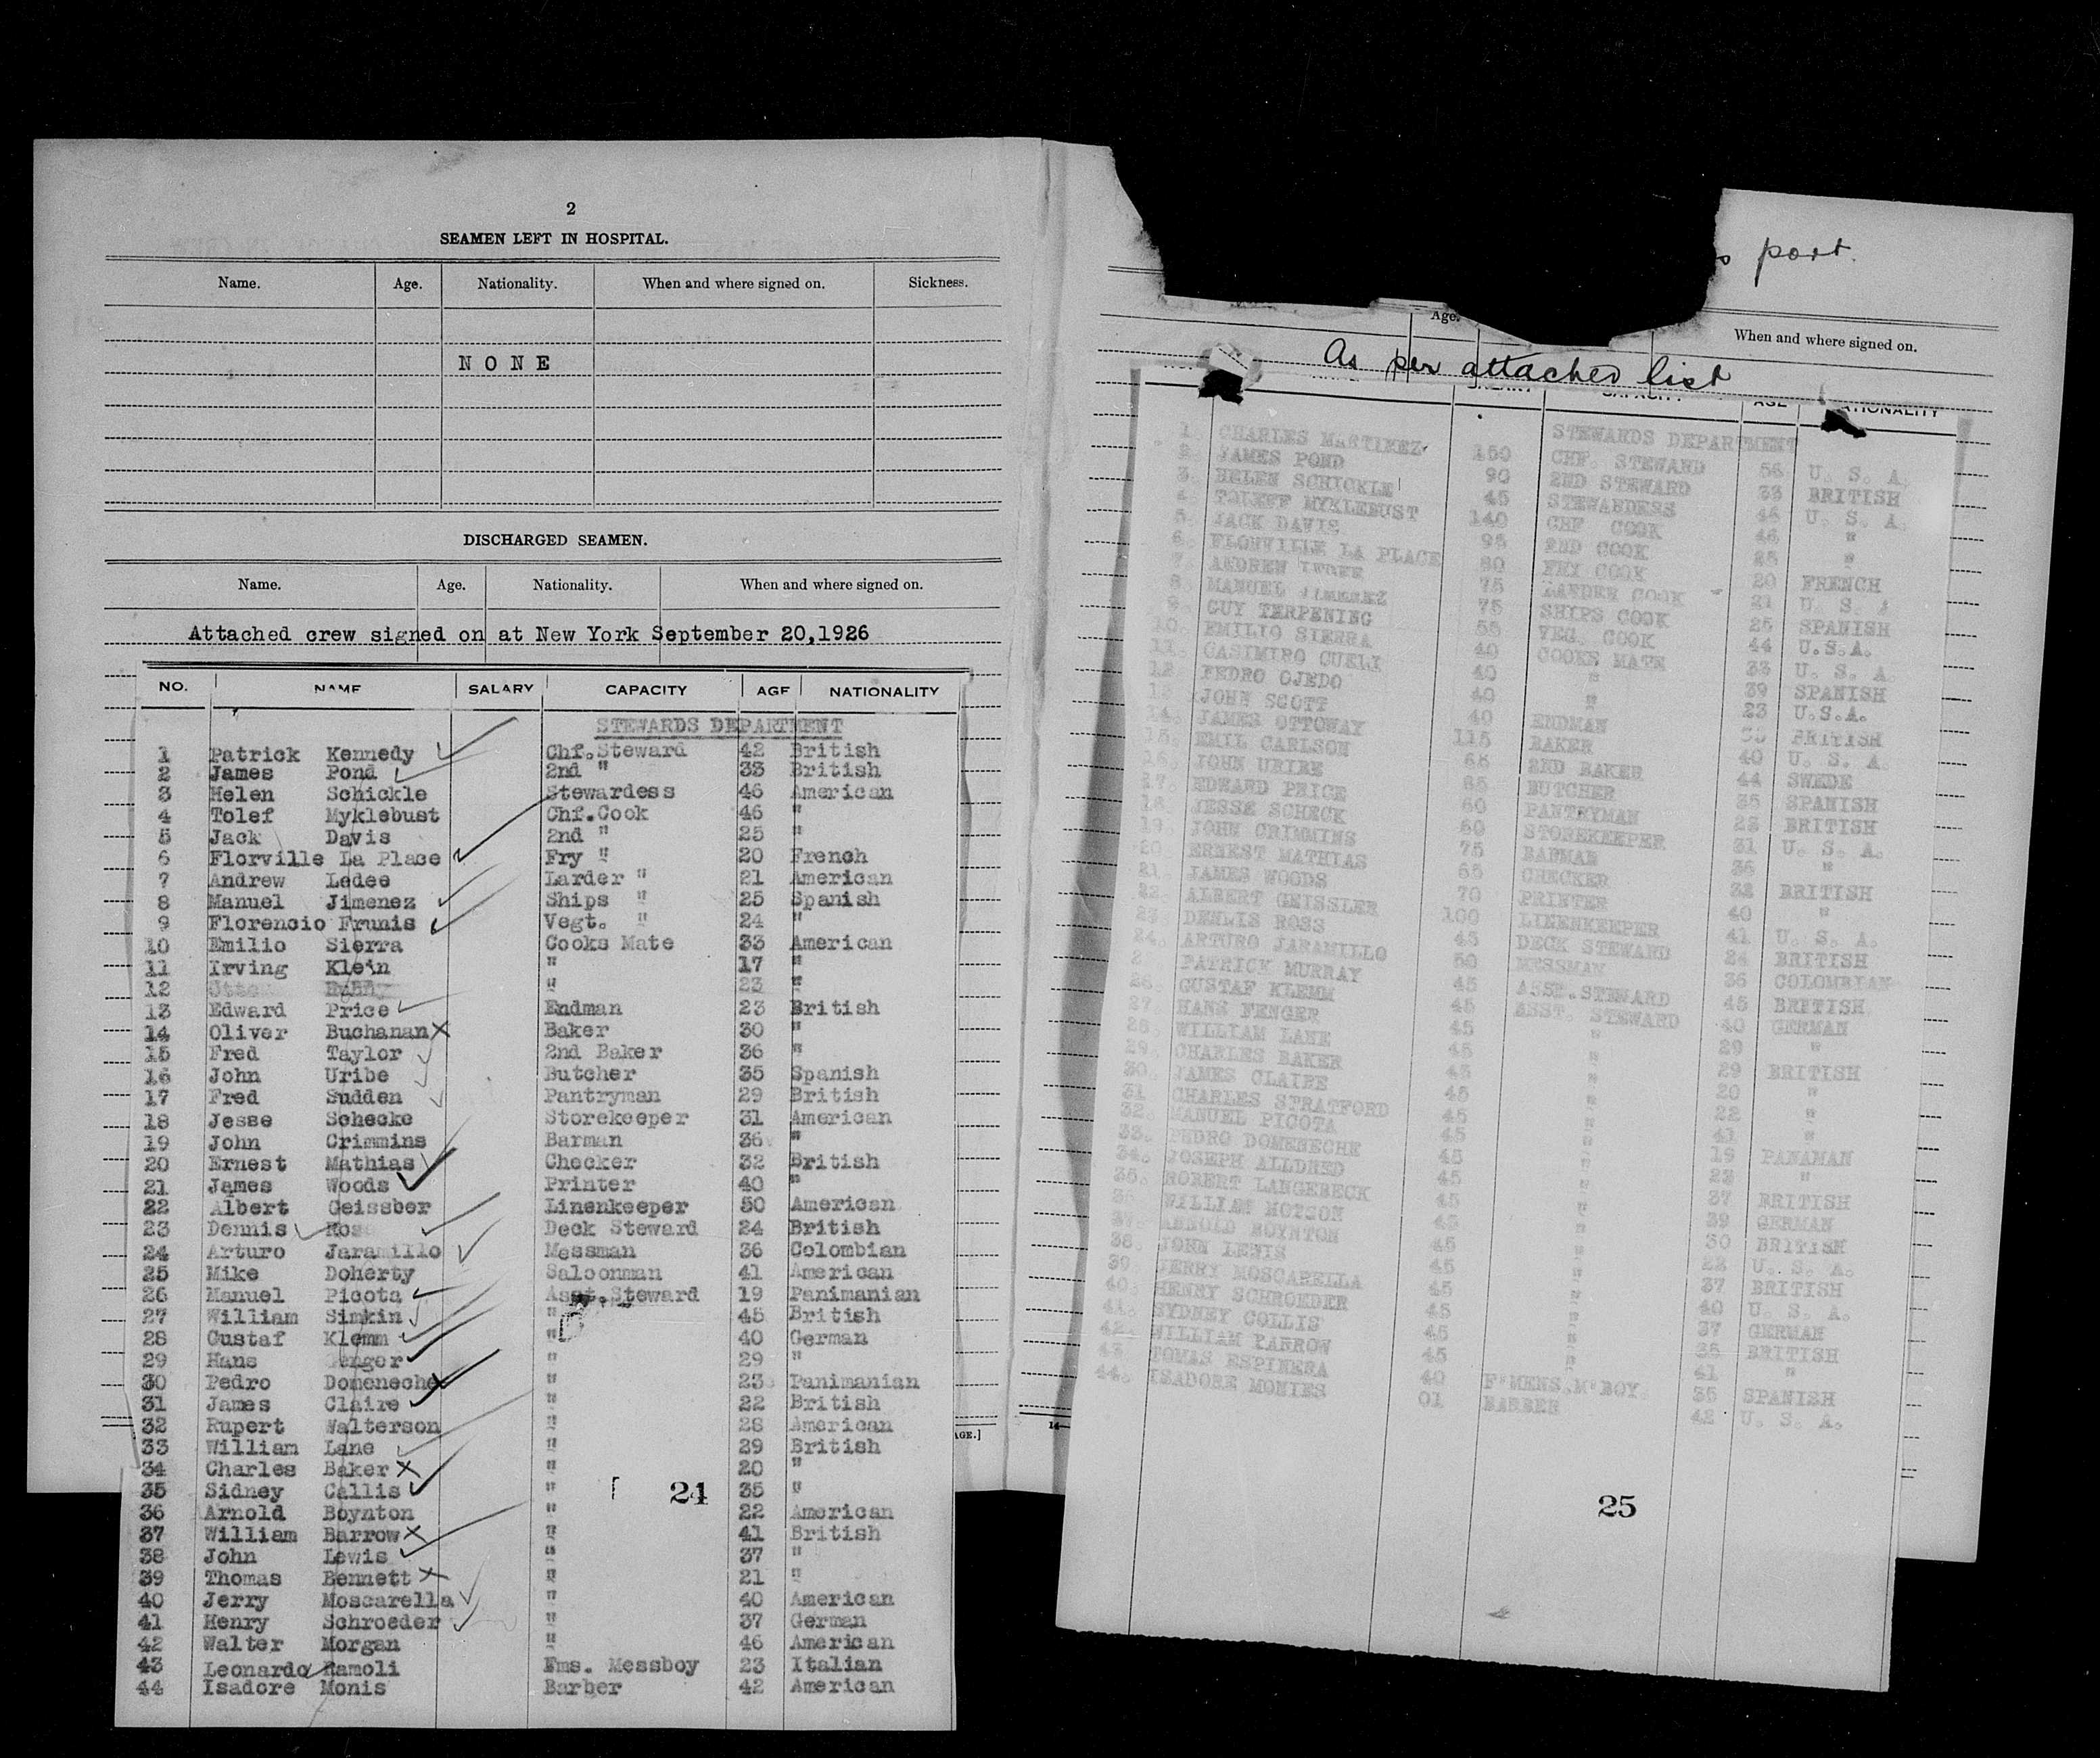 2
SEAMEN LEFT IN HOSPITAL.
Name. Age. Nationality. When and where signed on. Sickness.
NONE
DISCHARGED SEAMEN.
Name. Age. Nationality. When and where signed on.
Attached crew signed on at New York September 20,1926
NO. NAME SALARY CAPACITY AGE NATIONALITY
STEWARDS DEPARTMENT
1 Patrick Kennedy Chf.Steward 42 British
2 James Pond 2nd " 33 British
3 Helen Schickle Stewardess 46 American
4 Tolef Myklebust Chf.Cook 46 "
5 Jack Davis 2nd " 25 "
6 Florville La Place Fry " 20 French
7 Andrew Ledee Larder " 21 American
8 Manuel Jimenez Ships " 25 Spanish
9 Florencio Frunis Vegt. " 24 "
10 Emilio Sierra Cooks Mate 33 American
11 Irving Klein " 17 "
12 " 23 "
13 Edward Price Endman 23 British
14 Oliver Buchanan Baker 30 "
15 Fred Taylor 2nd Baker 36 "
16 John Uribe Butcher 35 Spanish
17 Fred Sudden Pantryman 29 British
18 Jesse Schecke Storekeeper 31 American
19 John Crimmins Barman 36 "
20 Ernest Mathias Checker 32 British
21 James Woods Printer 40 "
22 Albert Geissber Linenkeeper 50 American
23 Dennis Deck Steward 24 British
24 Arturo Jaramillo Messman 36 Colombian
25 Mike Doherty Saloonman 41 American
26 Manuel Picota Asst.Steward 19 Panimanian
27 William Simkin " 45 British
28 Gustaf Klemm " 40 German
29 Hans " 29 "
30 Pedro Domeneche " 23 Panimanian
31 James Claire " 22 British
32 Rupert Walterson " 28 American
33 William Lane " 29 British
34 Charles Baker " 20 "
35 Sidney Callis " 35 "
36 Arnold Boynton " 22 American
37 William Barrow " 41 British
38 John Lewis " 37 "
39 Thomas Bennett " 21 "
40 Jerry Moscarella " 40 American
41 Henry Schroeder " 37 German
42 Walter Morgan " 46 American
43 Leonardo Ramoli Fms. Messboy 23 Italian
44 Isadore Monis Barber 42 American
24
AGE.]
port.
Age. When and where signed on.
As per attached list
AGE
STEWARDS DEPARTMENT
1. CHARLES MARTINEZ 150 CHF. STEWARD 56 U. S. A.
2. JAMES POND 90 2ND STEWARD 33 BRITISH
3. HELEN SCHICKLE 45 STEWARDESS 46 U. S. A.
4. TOLEFF MYKLEBUST 140 CHF COOK 46 "
5. JACK DAVIS 95 2ND COOK 25 "
6. FLORVILLE LA PLACE 80 FRY COOK 20 FRENCH
7. ANDREW LEDEE 75 LARDER COOK 21 U. S. A
8. MANUEL JIMENEZ 75 SHIPS COOK 25 SPANISH
9. GUY TERPENING 55 VEG. COOK 44 U.S.A.
10. EMILIO SIERRA 40 COOKS MATE 33 U. S. A.
11. CASIMIRO CUELI 40 " 39 SPANISH
12. PEDRO OJEDO 40 " 23 U.S.A.
JOHN SCOTT 40 ENDMAN BRITISH
14. JAMES OTTOWAY 115 BAKER 40 U. S. A.
15. EMIL CARLSON 2ND BAKER 44 SWEDE
16. JOHN URIBE BUTCHER 35 SPANISH
17. EDWARD PRICE 60 PANTRYMAN 23 BRITISH
18. JESSE SCHECK 60 STOREKEEPER 31 U. S. A.
19. JOHN CRIMMINS 75 BARMAN 36 "
20. ERNEST MATHIAS CHECKER 32 BRITISH
21. JAMES WOODS 70 PRINTER 40 "
22. ALBERT GEISSLER 100 LINENKEEPER 41 U. S. A.
23. DENNIS ROSS 45 DECK STEWARD 24 BRITISH
24. ARTURO JARAMILLO 50 MESSMAN 36 COLOMBIAN
PATRICK MURRAY 45 ASST.STEWARD 45 BRITISH
26. GUSTAF KLEMM 45 ASST. STEWARD 40 GERMAN
27. HANS FENGER 45 " 29 "
28. WILLIAM LANE 45 " 29 BRITISH
29. CHARLES BAKER 45 " 20 "
30. JAMES CLAIRE 45 " 22 "
31 CHARLES STRATFORD 45 " 41 "
32. MANUEL PICOTA 45 " 19 PANAMAN
33. PEDRO DOMENECHE 45 " 23 "
34. JOSEPH ALLDRED 45 " 37 BRITISH
35. ROBERT LANGEBECK 45 " 39 GERMAN
WILLIAM 45 " 30 BRITISH
37. ARNOLD BOYNTON 45 " 22 U. S. A.
38. JOHN LEWIS 45 " 37 BRITISH
39. JERRY MOSCARELLA 45 " 40 U. S. A.
40. HENRY SCHROEDER 45 " 37 GERMAN
41. SYDNEY COLLIS 45 " 35 BRITISH
42. WILLIAM 45 " 41 "
43. TOMAS ESPINERA 40 F'MENS.M'BOY. 35 SPANISH
44. ISADORE MONIES 01 BARBER 42 U. S. A.
25